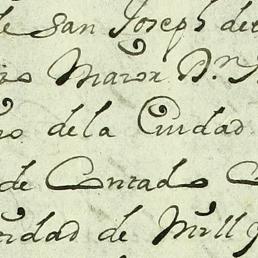 de San Joseph de
Maior D.n
no dela Ciudad
de Contado
tidad de Mill